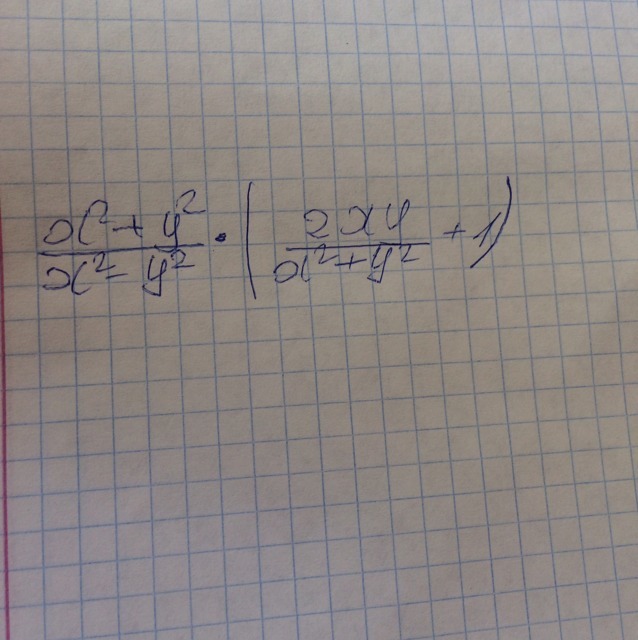 (x² + y²)/(x² - y²) · (2xy/(x² + y²) + 1)